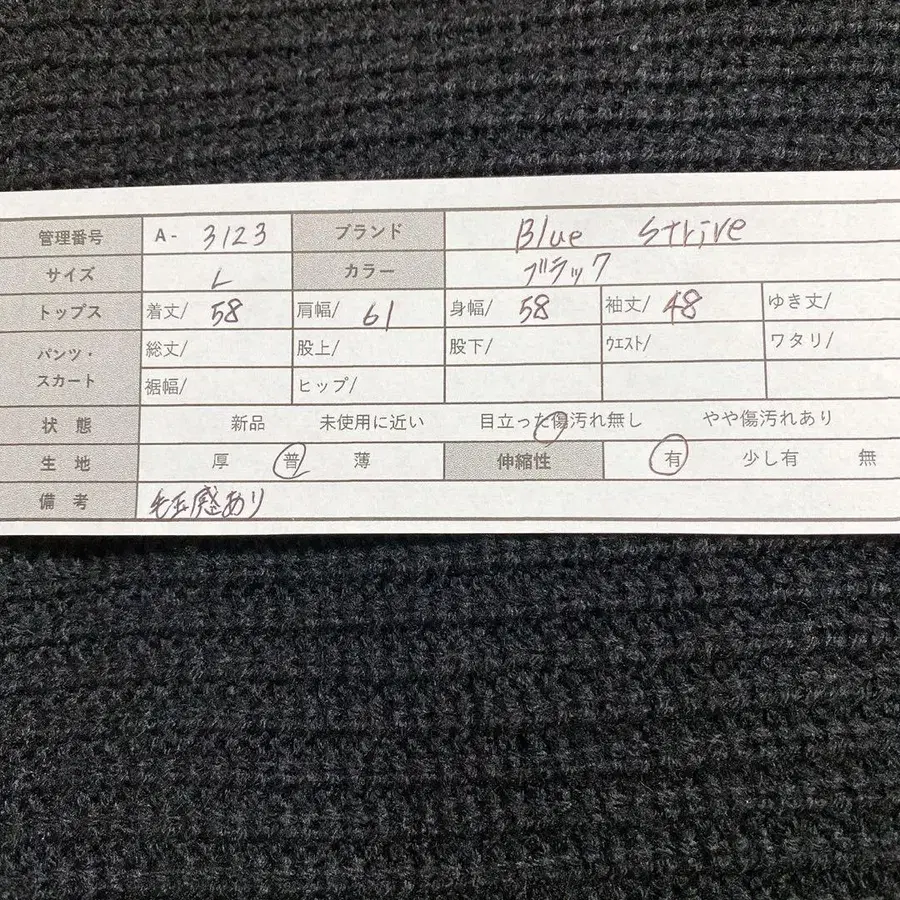 管理番号 A- 3123 ブランド Blue Strive
サイズ L カラー ブラック
トップス 着丈/ 58 肩幅/ 61 身幅/ 58 袖丈/ 48 ゆき丈/
パンツ・スカート 総丈/ 股上/ 股下/ ウエスト/ ワタリ/
裾幅/ ヒップ/
状態 新品 未使用に近い 目立った傷汚れ無し やや傷汚れあり
生地 厚 普 薄 伸縮性 有 少し有 無
備考 毛玉感あり